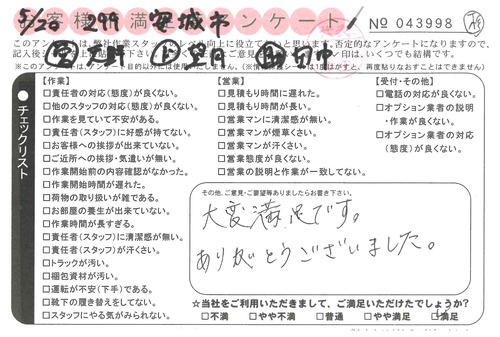 お客様満足アンケート
5/28 299 安城市
No 043998
このアンケートは、弊社作業スタッフのレベル向上に役立てたいと思います。否定的なアンケートになりますので、
でも結構です。
(※このアンケート、アンケート目的以外には使用いたしません。)
【作業】
□責任者の対応(態度)が良くない。
□他のスタッフの対応(態度)が良くない。
□作業を見ていて不安がある。
□責任者(スタッフ)に好感が持てない。
□お客様への挨拶が出来ていない。
□ご近所への挨拶・気遣いが無い。
□作業開始前の内容確認がなかった。
□作業開始時間が遅れた。
□荷物の取り扱いが雑である。
□お部屋の養生が出来ていない。
□作業時間が長すぎる。
□責任者(スタッフ)に清潔感が無い。
□責任者(スタッフ)が汗くさい。
□トラックが汚い。
□梱包資材が汚い。
□運転が不安(下手)である。
□靴下の履き替えをしてない。
□スタッフにやる気がみられない。
【営業】
□見積もり時間に遅れた。
□見積もり時間が長い。
□営業マンに清潔感が無い。
□営業マンが煙草くさい。
□営業マンが汗くさい。
□営業態度が良くない。
□営業の説明と作業が一致してない。
【受付・その他】
□電話の対応が良くない。
□オプション業者の説明
・作業が良くない。
□オプション業者の対応
(態度)が良くない。
チェックリスト
その他、ご意見・ご要望等ありましたらお書き下さい。
大変満足です。
ありがとうございました。
☆当社をご利用いただきまして、ご満足いただけたでしょうか?
□不満 □やや不満 □普通 □やや満足 □満足